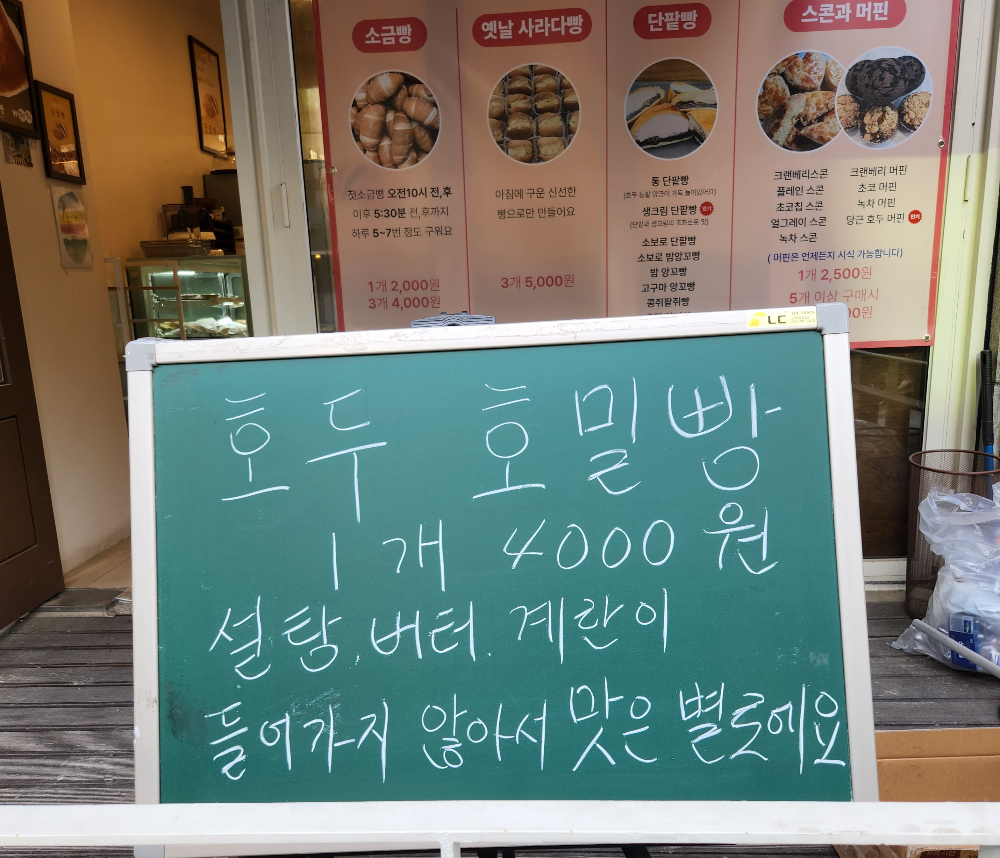 소금빵
첫소금빵 오전10시 전,후
이후 5:30분 전,후까지
하루 5~7번 정도 구워요
1개 2,000원
3개 4,000원
옛날 사라다빵
아침에 구운 신선한
빵으로만 만들어요
3개 5,000원
단팥빵
통 단팥빵
생크림 단팥빵 인기
소보로 단팥빵
소보로 밤앙꼬빵
밤 앙꼬빵
고구마 앙꼬빵
콩쥐팥쥐빵
스콘과 머핀
크랜베리스콘
플레인 스콘
초코칩 스콘
얼그레이 스콘
녹차 스콘
크랜베리 머핀
초코 머핀
녹차 머핀
당근 호두 머핀 인기
( 머핀은 언제든지 시식 가능합니다)
1개 2,500원
5개 이상 구매시
00원
LC
호두 호밀빵
1개 4000원
설탕, 버터, 계란이
들어가지 않아서 맛은 별로에요